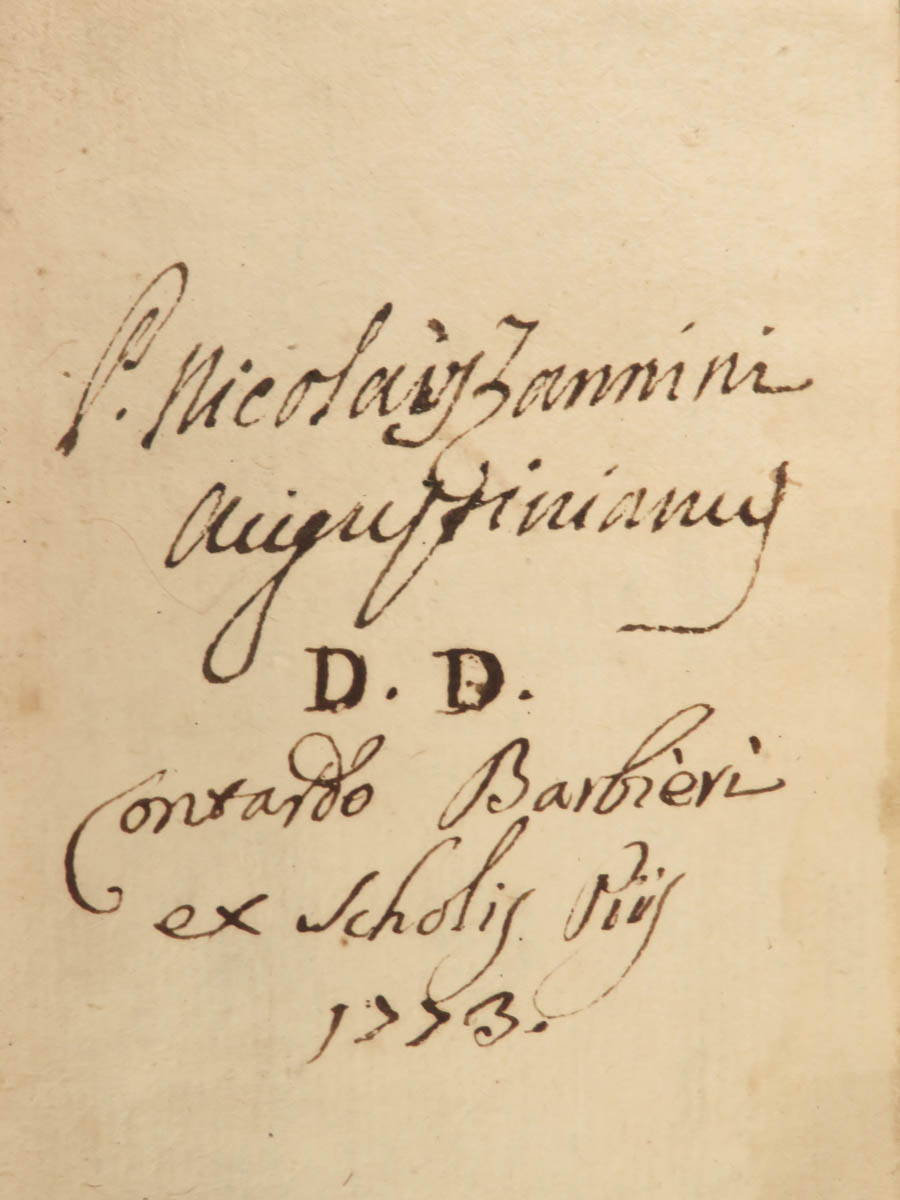 P. Nicolaus Zannini
Augustinianus
D. D.
Contardo Barbieri
ex Scholis Piis
1773.